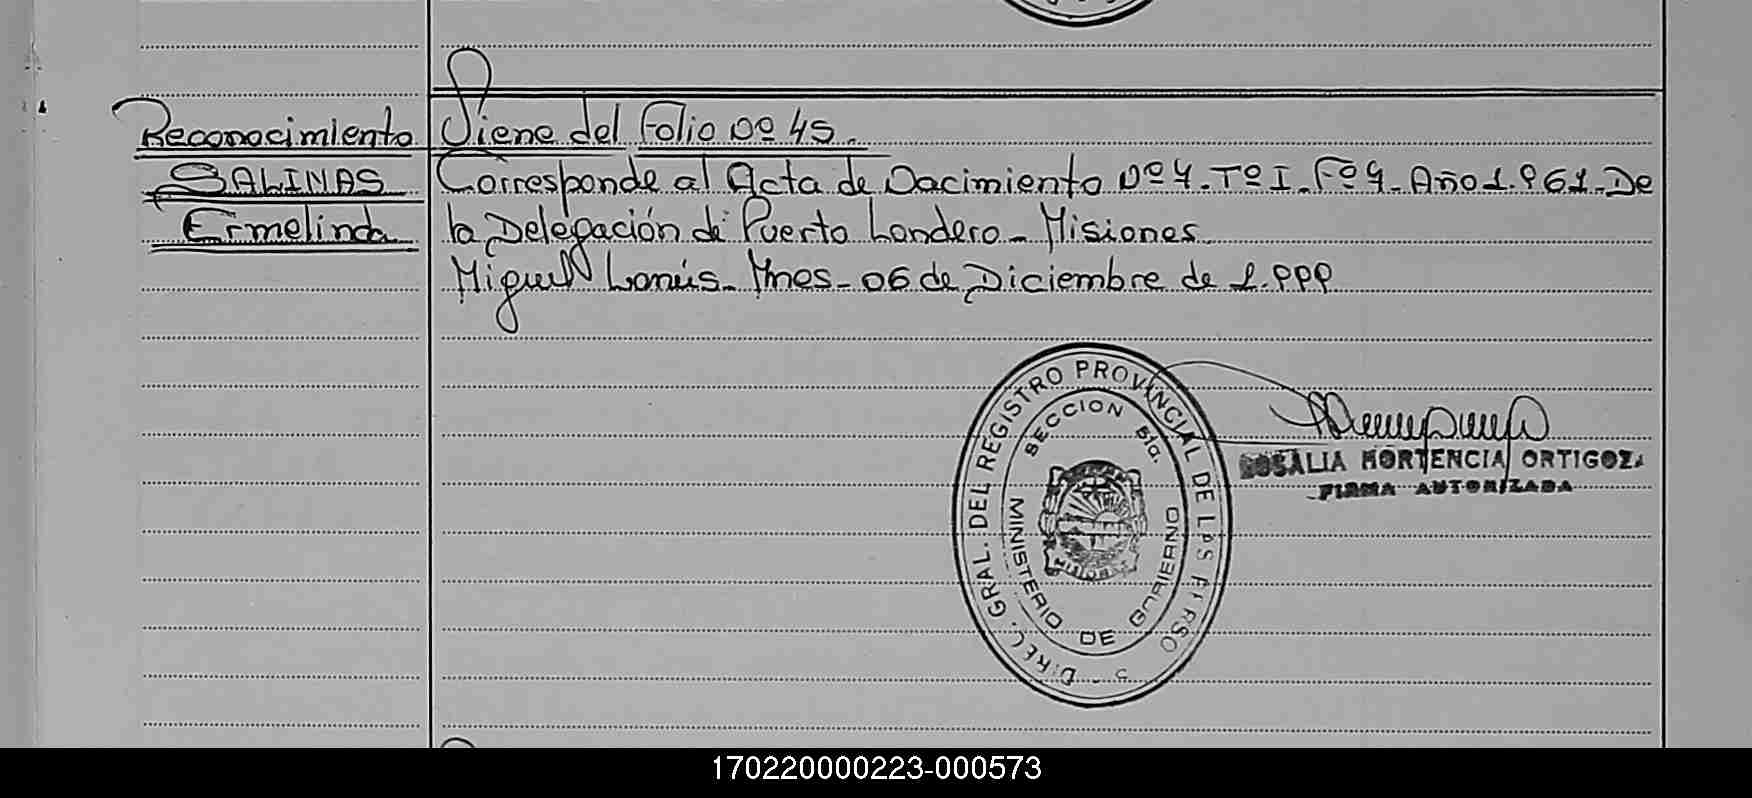 Reconocimiento
SALINAS
Ermelinda
Viene del Folio Nº 45.
Corresponde al Acta de Nacimiento Nº 4. Tº I. Fº 4. Año 1.961. De
la Delegación de Puerto Londero - Misiones.
Miguel Lanús - Mnes - 06 de Diciembre de 1.999
DIREC. GRAL. DEL REGISTRO PROVINCIAL DE LAS PERSONAS
SECCION 51a.
MINISTERIO DE GOBIERNO
MISIONES
ROSALIA HORTENCIA ORTIGOZA
FIRMA AUTORIZADA
170220000223-000573